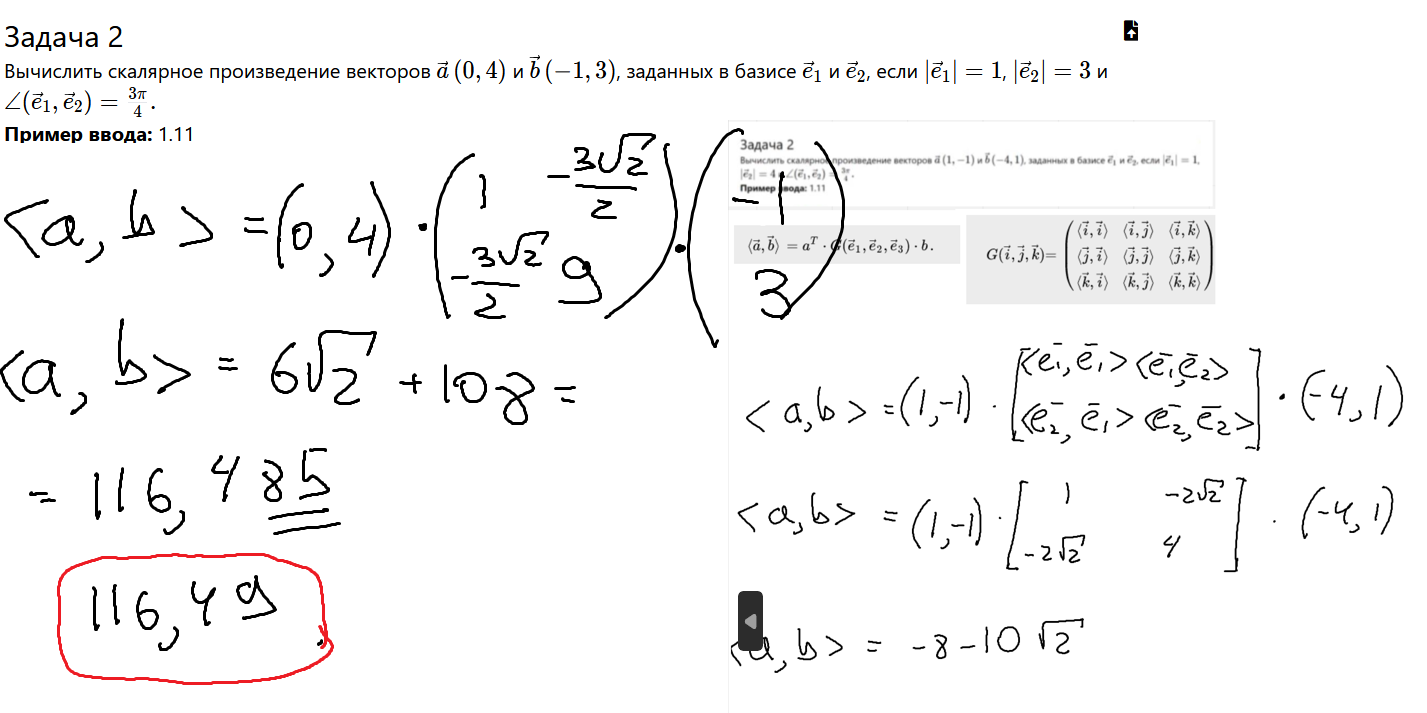 Задача 2
Вычислить скалярное произведение векторов a⃗ (0, 4) и b⃗ (−1, 3), заданных в базисе e⃗₁ и e⃗₂, если |e⃗₁| = 1, |e⃗₂| = 3 и
∠(e⃗₁, e⃗₂) = 3π/4.
Пример ввода: 1.11
<a, b> = (0, 4) · (1 −3√2/2; −3√2/2 9) · (−1; 3)
<a, b> = 6√2 + 108 =
= 116,485
116,49
Задача 2
Вычислить скалярное произведение векторов a⃗ (1, −1) и b⃗ (−4, 1), заданных в базисе e⃗₁ и e⃗₂, если |e⃗₁| = 1,
|e⃗₂| = 4 и ∠(e⃗₁, e⃗₂) = 3π/4.
Пример ввода: 1.11
⟨a⃗, b⃗⟩ = aᵀ · G(e⃗₁, e⃗₂, e⃗₃) · b.
G(i⃗, j⃗, k⃗)= (⟨i⃗, i⃗⟩ ⟨i⃗, j⃗⟩ ⟨i⃗, k⃗⟩
⟨j⃗, i⃗⟩ ⟨j⃗, j⃗⟩ ⟨j⃗, k⃗⟩
⟨k⃗, i⃗⟩ ⟨k⃗, j⃗⟩ ⟨k⃗, k⃗⟩)
<a, b> = (1, −1) · [<e̅₁, e̅₁> <e̅₁, e̅₂>; <e̅₂, e̅₁> <e̅₂, e̅₂>] · (−4, 1)
<a, b> = (1, −1) · [1 −2√2; −2√2 4] · (−4, 1)
<a, b> = −8 − 10√2